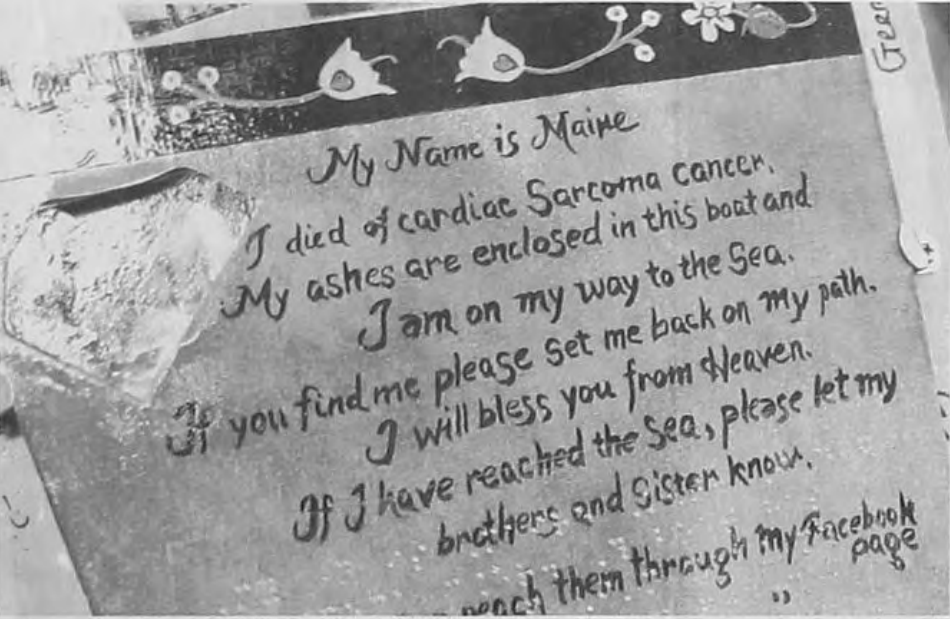 My Name is Maire
I died of cardiac Sarcoma cancer.
My ashes are enclosed in this boat and
I am on my way to the Sea.
If you find me please Set me back on my path.
I will bless you from Heaven.
If I have reached the Sea, please let my
brothers and Sister know.
reach them through my Facebook
page